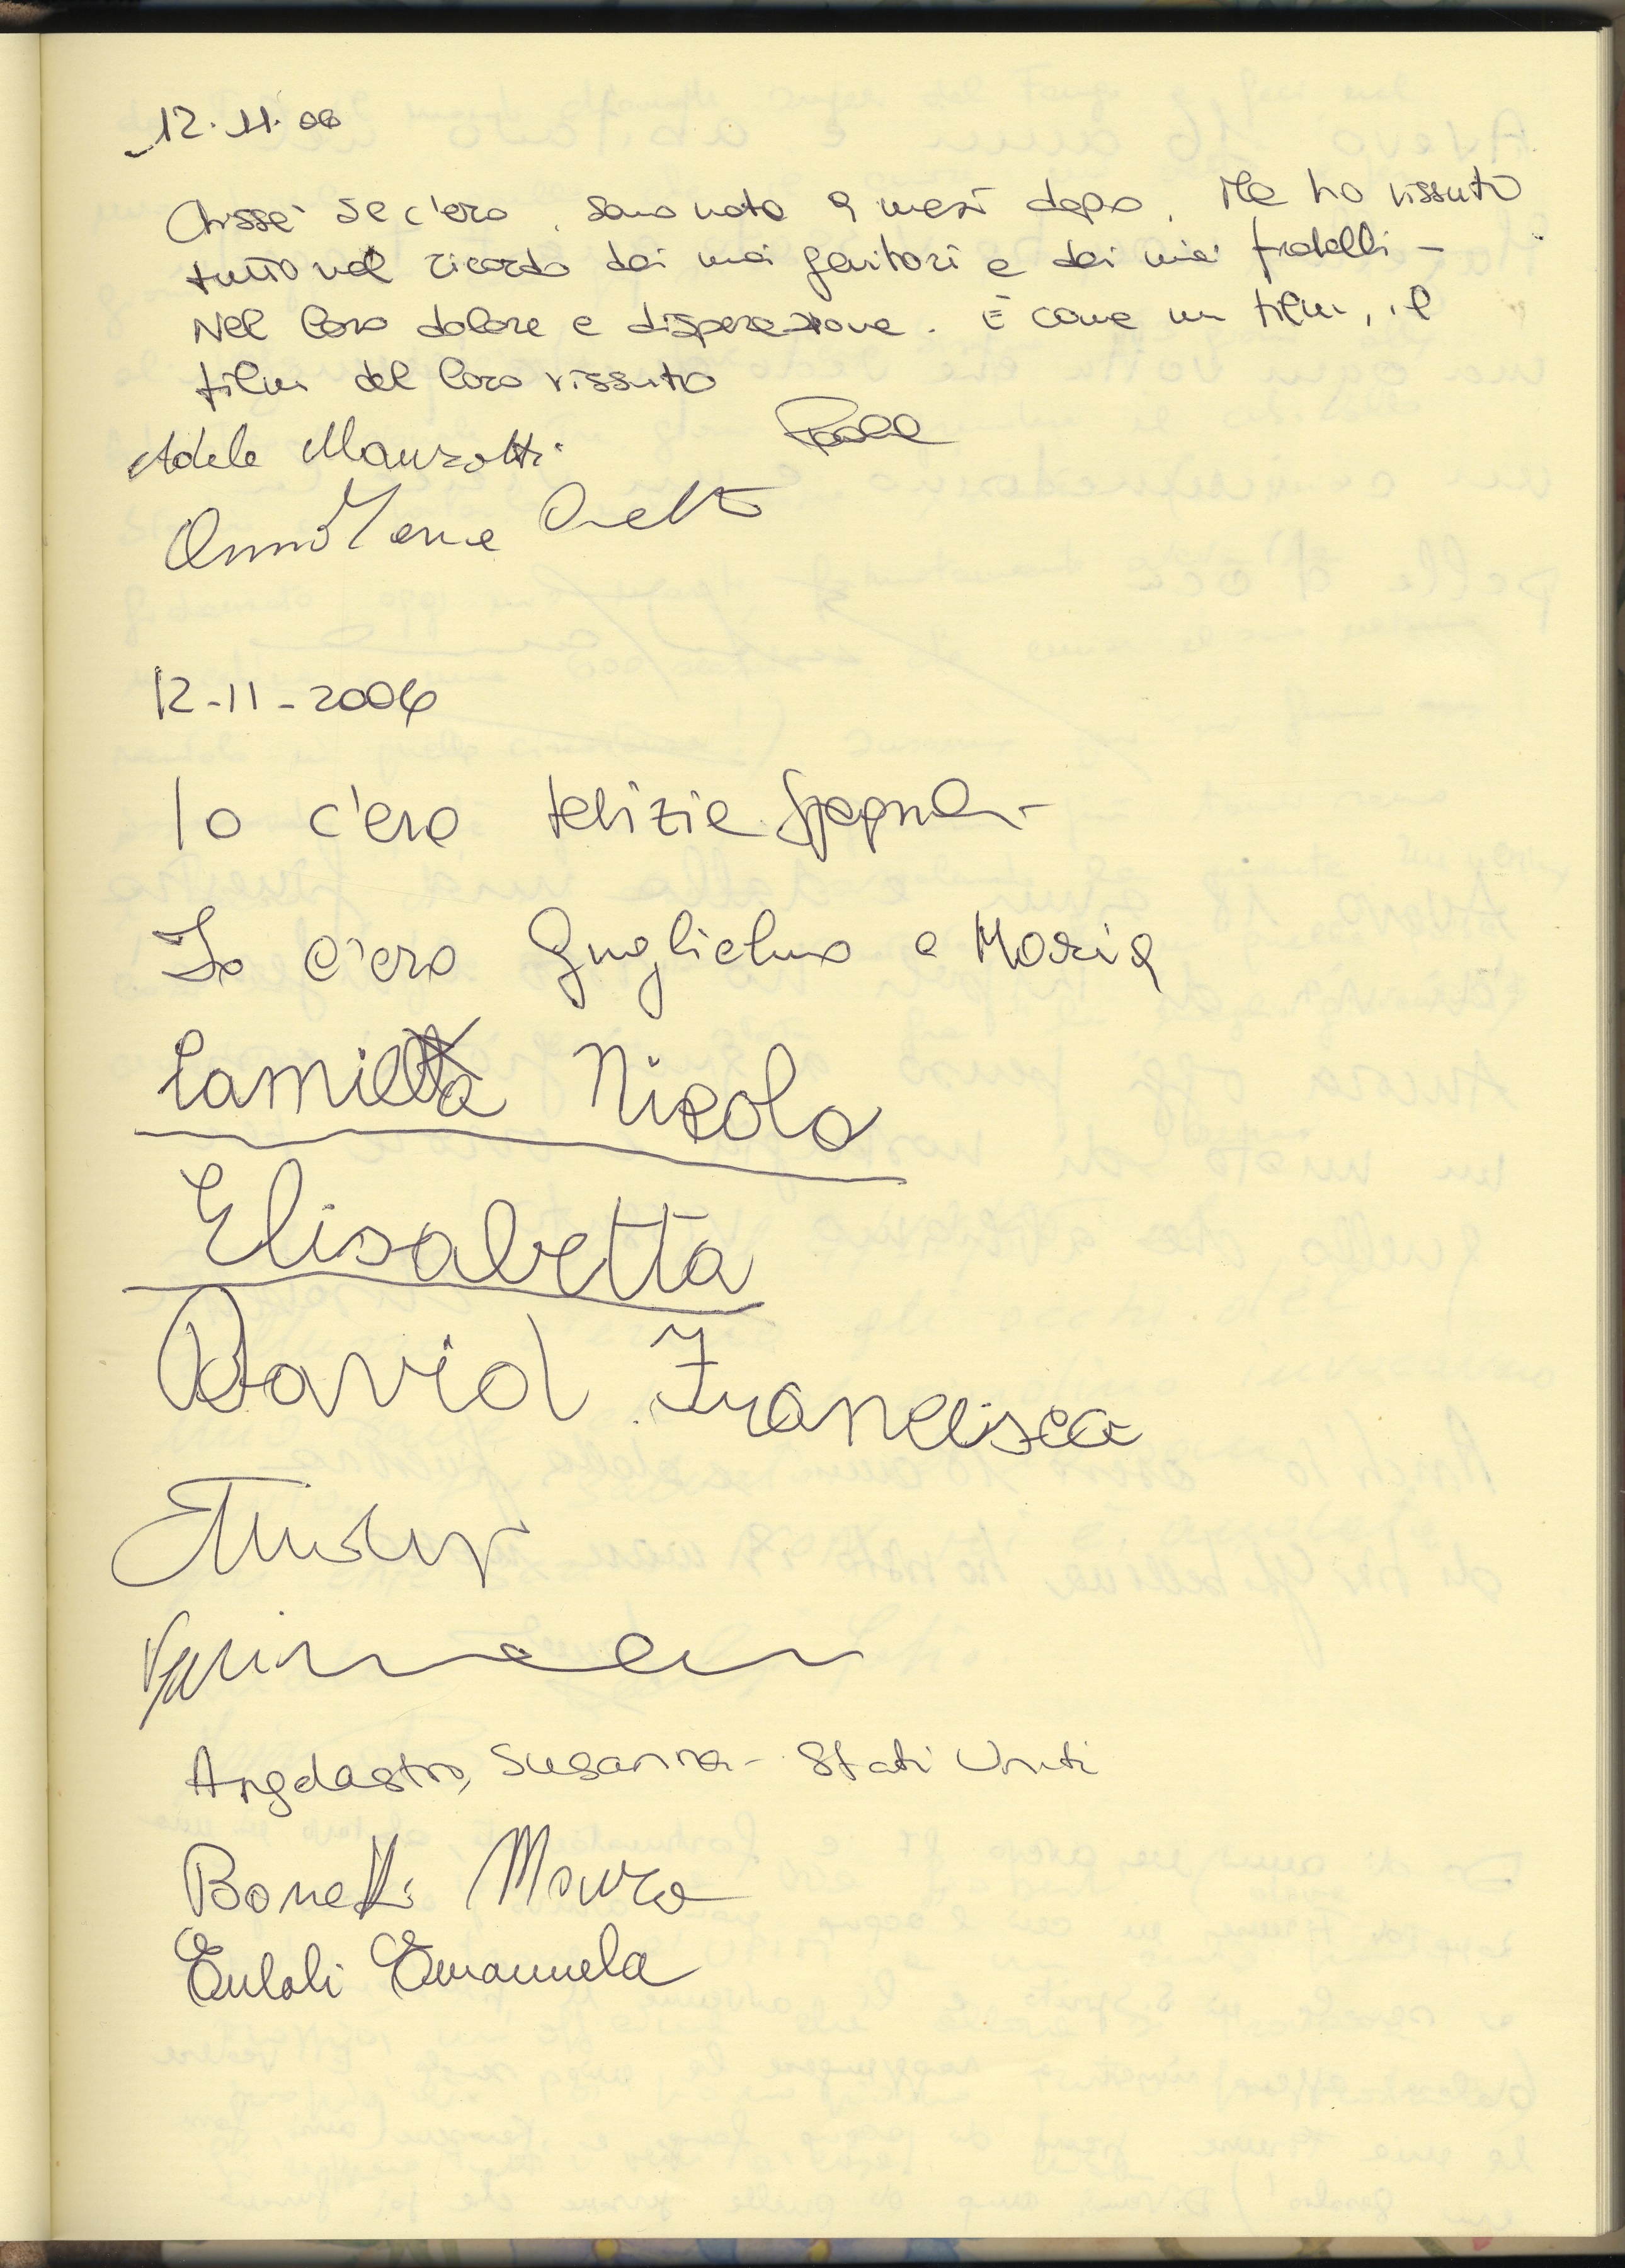 12.11.06
Chissà se c'ero, sono nata 9 mesi dopo. Ma ho vissuto
tutto nel ricordo dei miei genitori e dei miei fratelli -
Nel loro dolore e disperazione. È come un film, il
film del loro vissuto
Paola
Adele Manzotti
Anna Maria
12-11-2006
Io c'ero Letizia Spagna -
Io c'ero Guglielmo e Maria
Camilla Nicola
Elisabetta
David Francisca
Angdastro, Susanna - Stati Uniti
Bonetti Maura
Eulali Emanuela